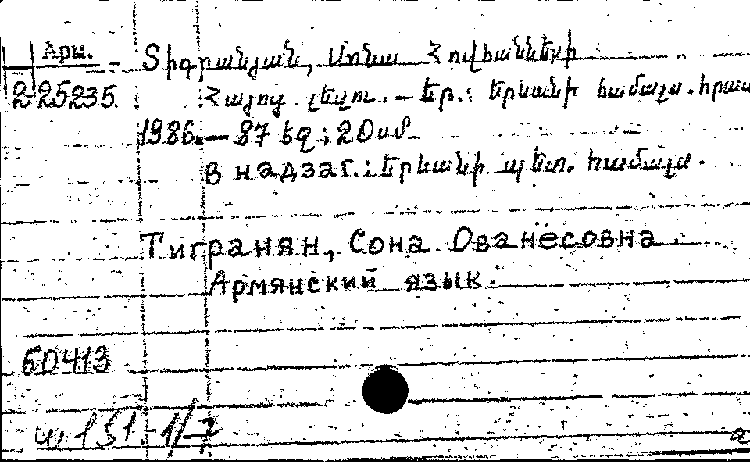 Арм.
2-25235
Տիգրանյան, Սոնա Հովհաննեսի
Հայոց լեզու. — Եր.: Երևանի համալս. հրատ
1986. — 87 էջ ; 20 սմ
В надзаг.: Երևանի պետ. համալս.
Тигранян, Сона Ованесовна
Армянский язык.
60413
151-1/7